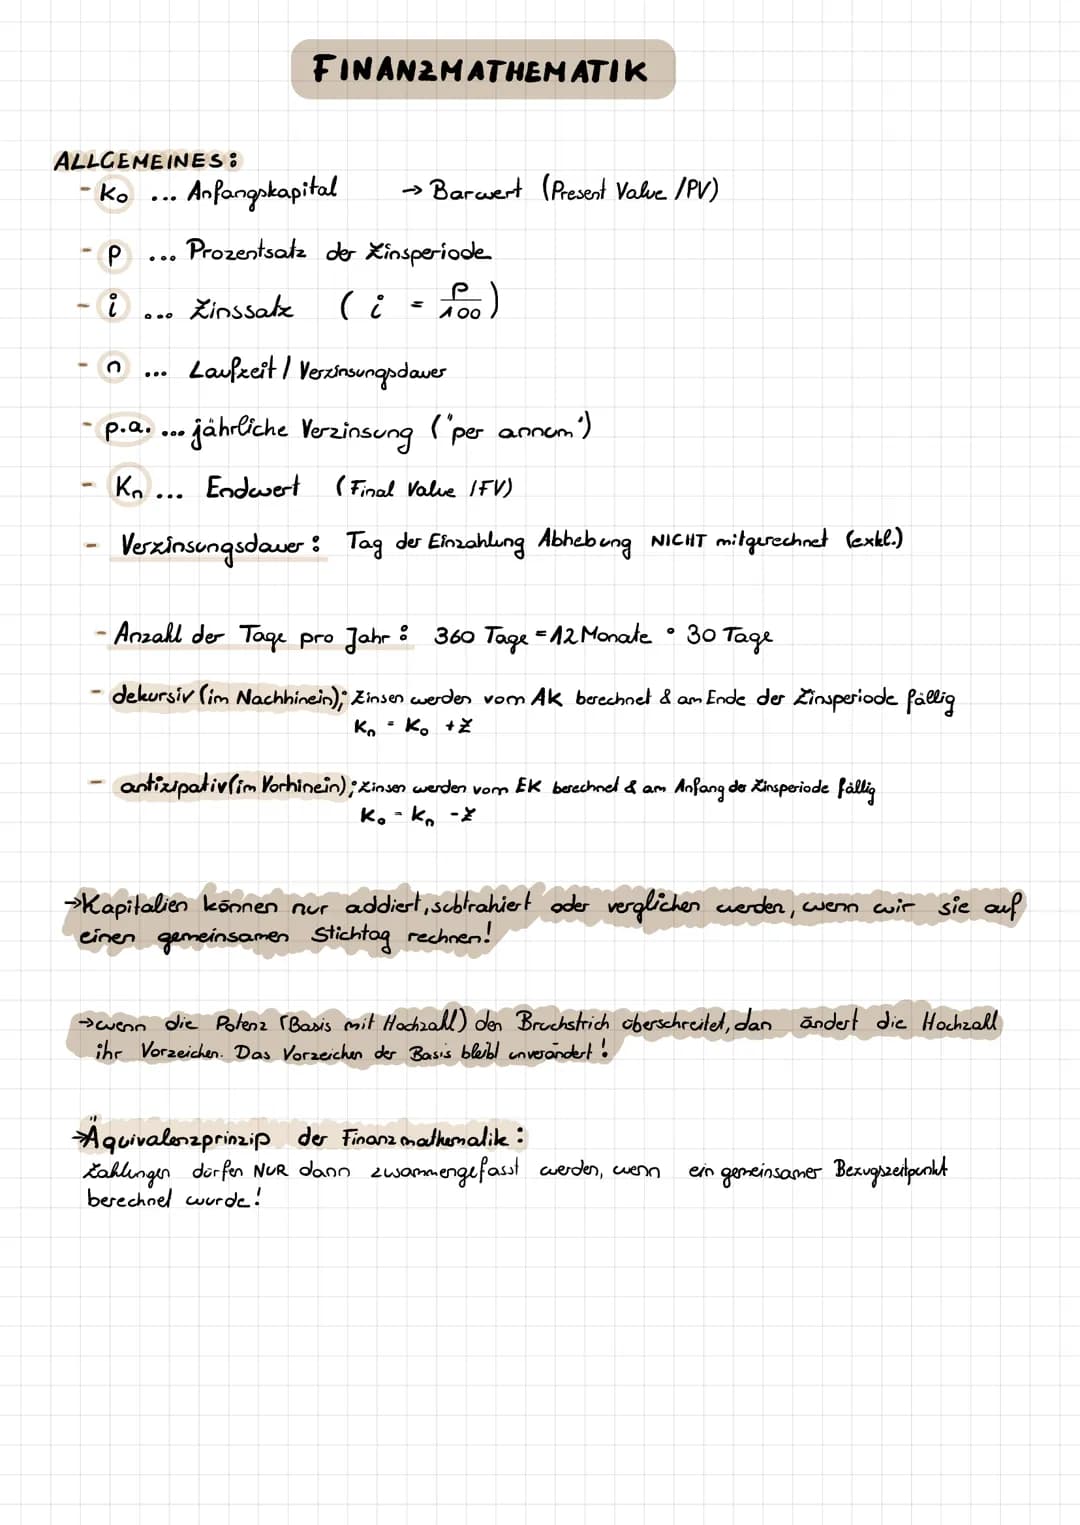 FINANZMATHEMATIK
ALLGEMEINES:
- K₀ ... Anfangskapital → Barwert (Present Value /PV)
- p ... Prozentsatz der Zinsperiode
- i ... Zinssatz ( i = p/100 )
- n ... Laufzeit / Verzinsungsdauer
- p.a. ... jährliche Verzinsung ("per annum")
- Kₙ ... Endwert (Final Value /FV)
- Verzinsungsdauer: Tag der Einzahlung Abhebung NICHT mitgerechnet (exkl.)
- Anzahl der Tage pro Jahr: 360 Tage = 12 Monate • 30 Tage
- dekursiv (im Nachhinein); Zinsen werden vom AK berechnet & am Ende der Zinsperiode fällig
Kₙ = K₀ + Z
- antizipativ (im Vorhinein); Zinsen werden vom EK berechnet & am Anfang der Zinsperiode fällig
K₀ = Kₙ - Z
→ Kapitalien können nur addiert, subtrahiert oder verglichen werden, wenn wir sie auf
einen gemeinsamen Stichtag rechnen!
→ wenn die Potenz (Basis mit Hochzahl) den Bruchstrich überschreitet, dan ändert die Hochzahl
ihr Vorzeichen. Das Vorzeichen der Basis bleibt unverändert!
→ Äquivalenzprinzip der Finanzmathematik:
Zahlungen dürfen NUR dann zusammengefasst werden, wenn ein gemeinsamer Bezugszeitpunkt
berechnet wurde!